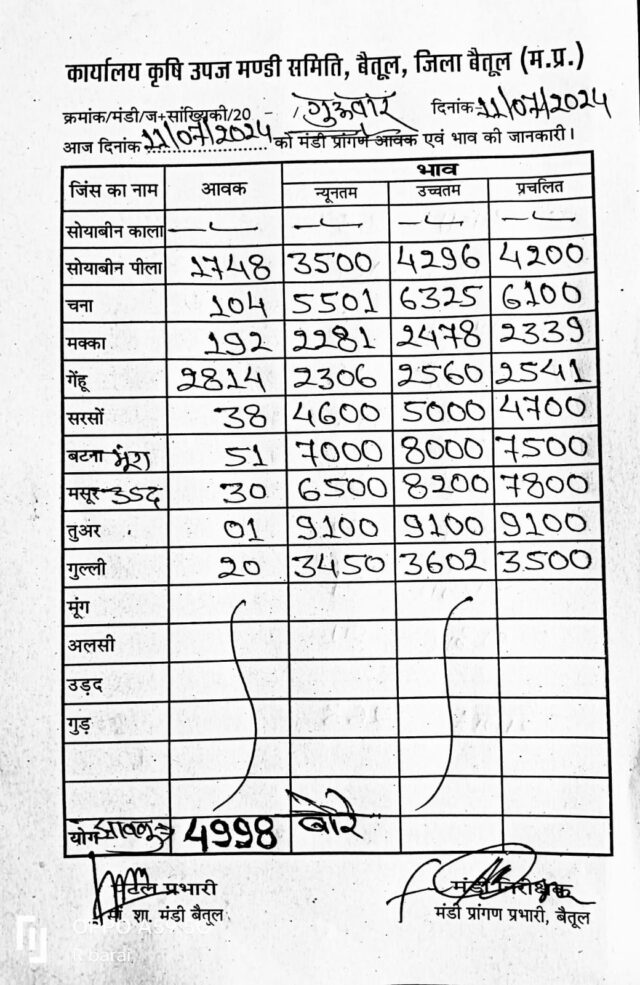 कार्यालय कृषि उपज मण्डी समिति, बैतूल, जिला बैतूल (म.प्र.)
क्रमांक/मंडी/ज+सांख्यिकी/20 - गुरूवार दिनांक 11/07/2024
आज दिनांक 11/07/2024 को मंडी प्रांगण आवक एवं भाव की जानकारी।
जिंस का नाम आवक भाव
न्यूनतम उच्चतम प्रचलित
सोयाबीन काला
सोयाबीन पीला 1748 3500 4296 4200
चना 104 5501 6325 6100
मक्का 192 2281 2478 2339
गेंहू 2814 2306 2560 2541
सरसों 38 4600 5000 4700
बटना मूंग 51 7000 8000 7500
मसूर उडद 30 6500 8200 7800
तुअर 01 9100 9100 9100
गुल्ली 20 3450 3602 3500
मूंग
अलसी
उड़द
गुड़
योग 4998 बोरे
प्रभारी मंडी निरीक्षक
शा. मंडी बैतूल मंडी प्रांगण प्रभारी, बैतूल